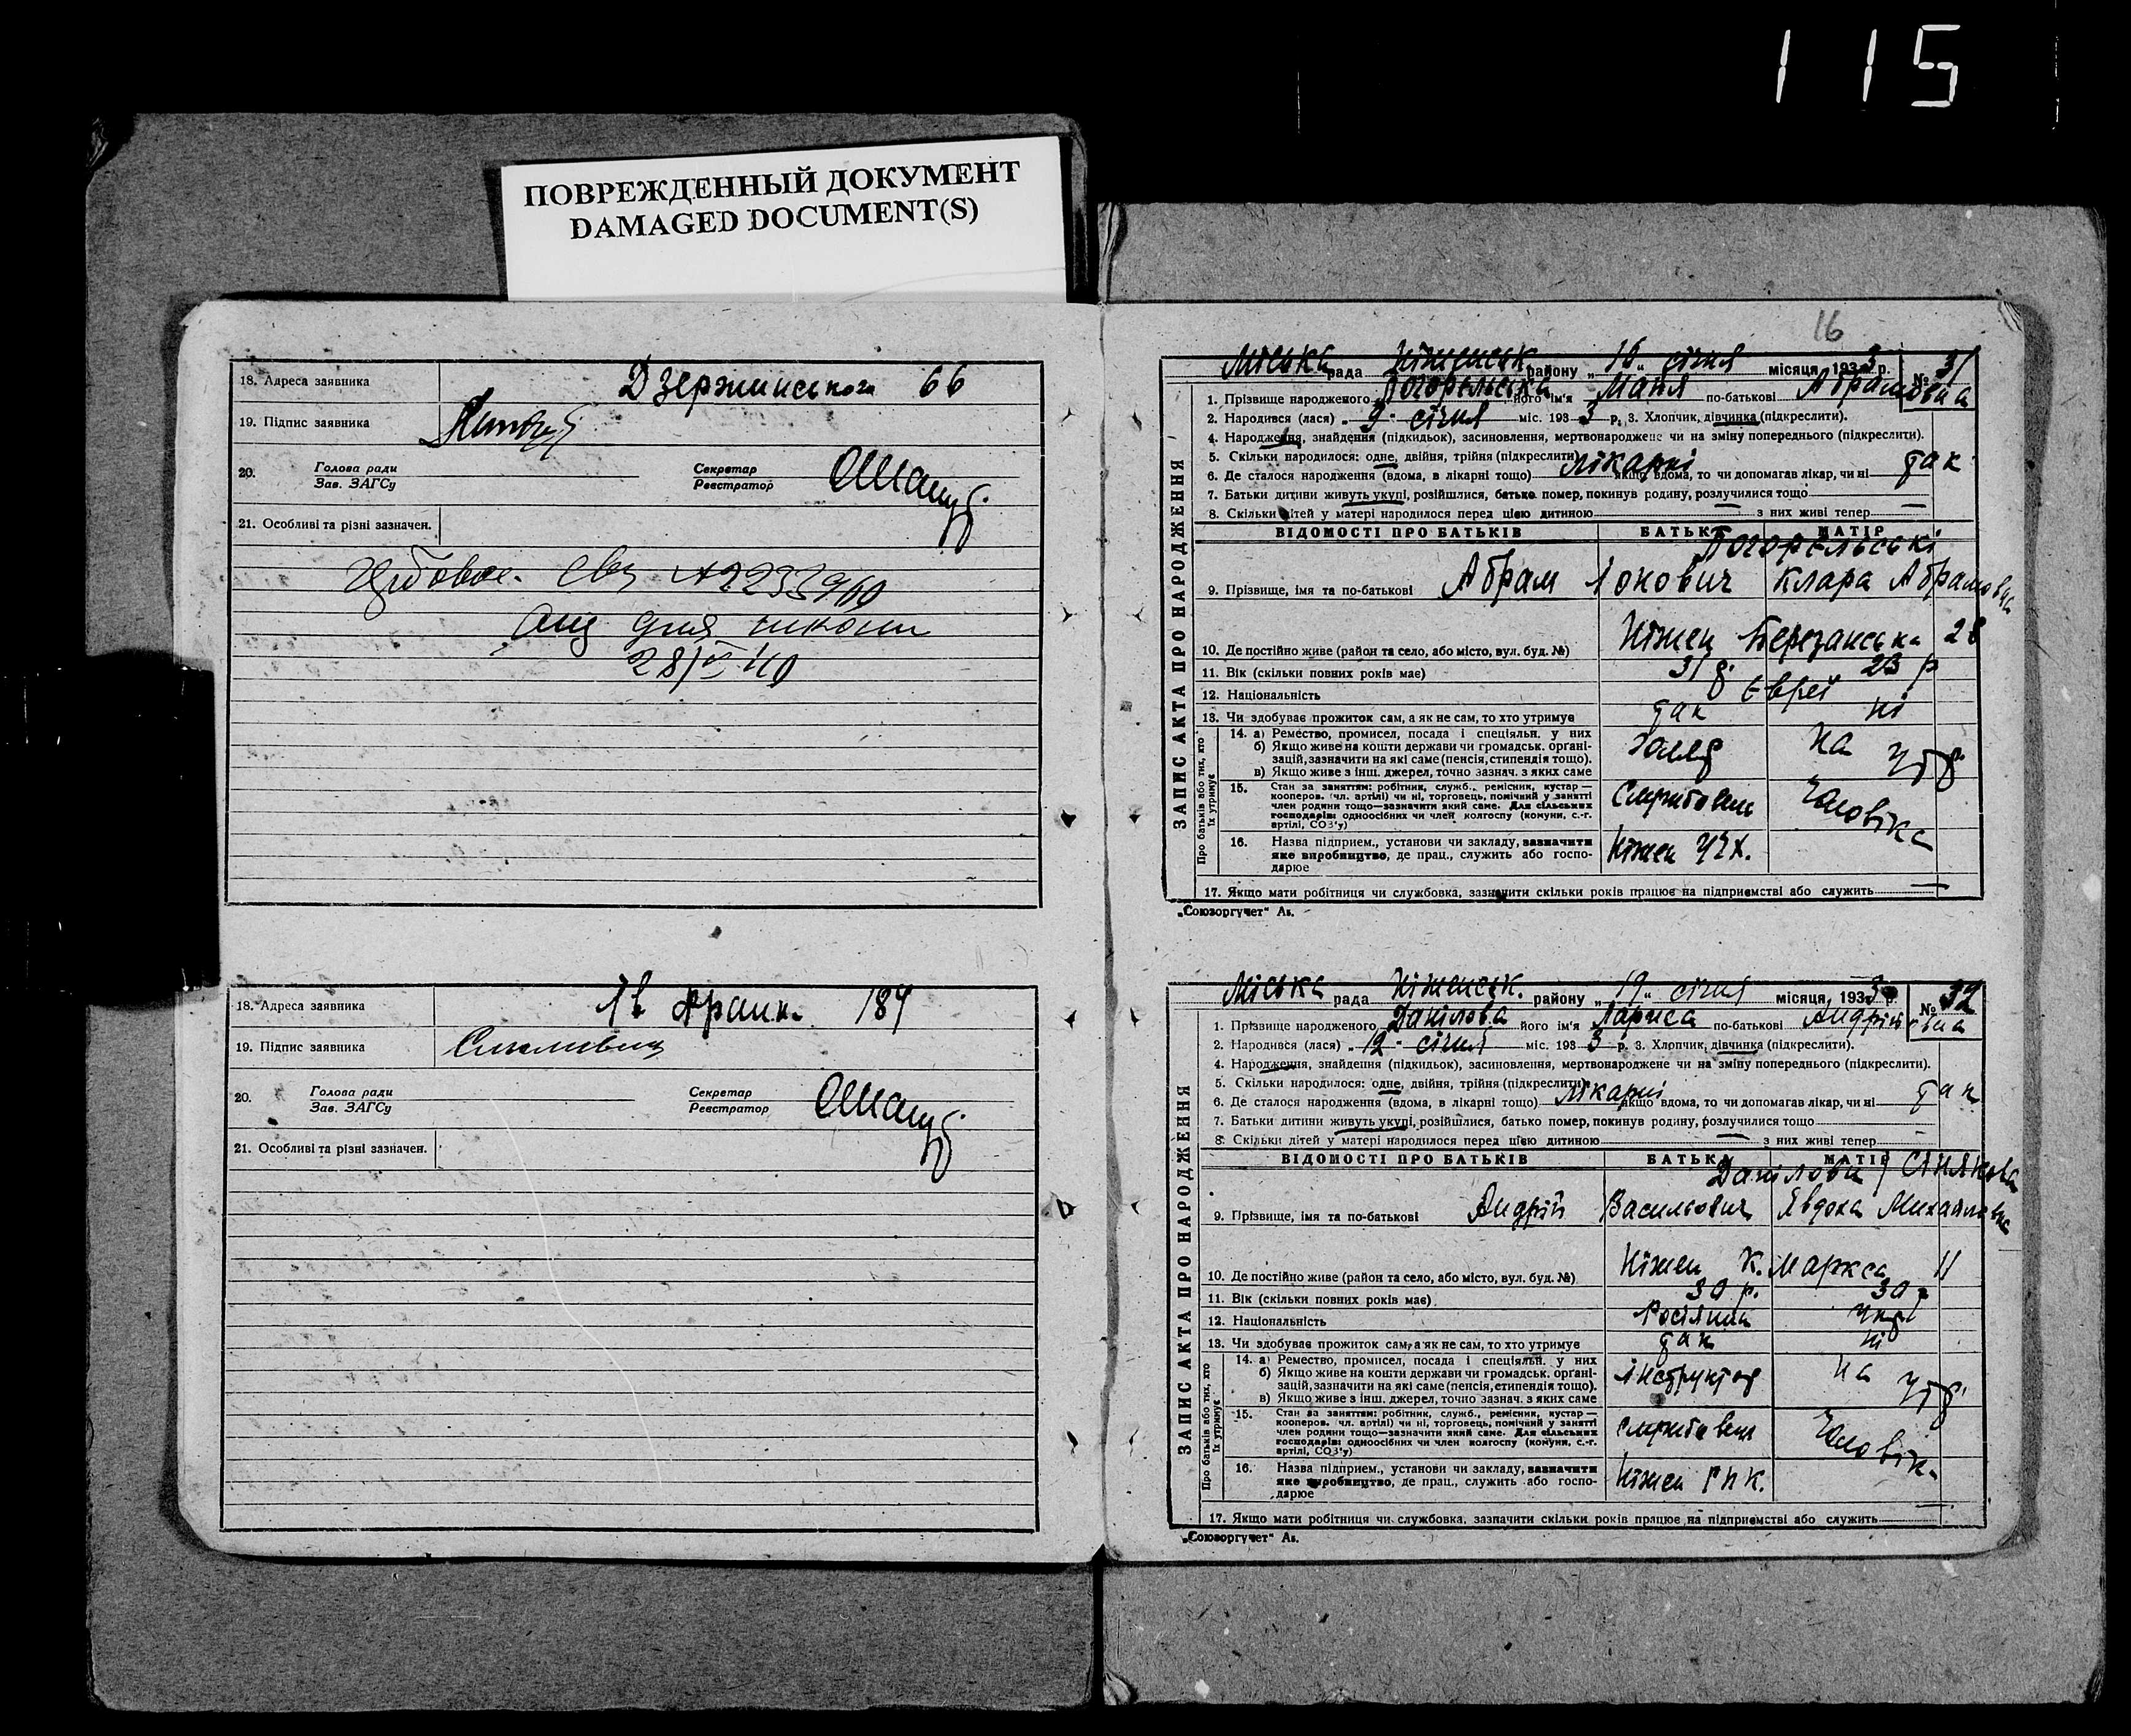 115
ПОВРЕЖДЕННЫЙ ДОКУМЕНТ
DAMAGED DOCUMENT(S)
18. Адреса заявника Дзержинського 66
19. Підпис заявника
20. Голова ради
Зав. ЗАГСу
Секретар
Реєстратор
21. Особливі та різні зазначен.
для школи
28/ 40
18. Адреса заявника 184
19. Підпис заявника
20. Голова ради
Зав. ЗАГСу
Секретар
Реєстратор
21. Особливі та різні зазначен.
16
ЗАПИС АКТА ПРО НАРОДЖЕННЯ
Міська рада Ніженськ району „16“ січня місяця 1933 р. № 31
1. Прізвище народженого Погорєльська його ім'я Маня по-батькові Абрамовна
2. Народився (лася) „9“ січня міс. 1933 р. 3. Хлопчик, дівчинка (підкреслити).
4. Народження, знайдення (підкидьок), засиновлення, мертвонароджене чи на зміну попереднього (підкреслити).
5. Скільки народилося: одне, двійня, трійня (підкреслити)
6. Де сталося народження (вдома, в лікарні тощо) лікарні якщо вдома, то чи допомагав лікар, чи ні так
7. Батьки дитини живуть укупі, розійшлися, батько помер, покинув родину, розлучилися тощо
8. Скільки дітей у матері народилося перед цією дитиною — з них живі тепер —
ВІДОМОСТІ ПРО БАТЬКІВ БАТЬКО МАТІР
Погорєльські
9. Прізвище, імя та по-батькові Абрам Йонович Клара Абрамовна
10. Де постійно живе (район та село, або місто, вул. буд. №) Ніжен Березанська 28
11. Вік (скільки повних років має) 31 р. 23 р
12. Національність Євреї
13. Чи здобуває прожиток сам, а як не сам, то хто утримує так ні
Про батьків або тих, хто їх утримує
14. а) Ремество, промисел, посада і спеціяльн. у них
б) Якщо живе на кошти держави чи громадськ. органі-
зацій, зазначити на які саме (пенсія, стипендія тощо). на утр.
в) Якщо живе з інш. джерел, точно зазнач. з яких саме
15. Стан за заняттям: робітник, служб., ремісник, кустар —
кооперов. (чл. артілі) чи ні, торговець, помічний у занятті
член родини тощо—зазначити який саме. Для сільських
господарів: одноосібних чи член колгоспу (комуни, с.-г.
артілі, СОЗ'у) Службовец Чоловіка
16. Назва підприєм., установи чи закладу, зазначити
яке виробництво, де прац., служить або госпо-
дарює Ніжен
17. Якщо мати робітниця чи службовка, зазначити скільки років працює на підприємстві або служить —
„Союзоргучет“ Ав.
ЗАПИС АКТА ПРО НАРОДЖЕННЯ
Міська рада Ніженськ. району „19“ січня місяця 1933 р. № 32
1. Прізвище народженого Данілова його ім'я Лариса по-батькові Андріївна
2. Народився (лася) „12“ січня міс. 1933 р. 3. Хлопчик, дівчинка (підкреслити).
4. Народження, знайдення (підкидьок), засиновлення, мертвонароджене чи на зміну попереднього (підкреслити).
5. Скільки народилося: одне, двійня, трійня (підкреслити)
6. Де сталося народження (вдома, в лікарні тощо) лікарні якщо вдома, то чи допомагав лікар, чи ні так
7. Батьки дитини живуть укупі, розійшлися, батько помер, покинув родину, розлучилися тощо
8. Скільки дітей у матері народилося перед цією дитиною — з них живі тепер —
ВІДОМОСТІ ПРО БАТЬКІВ БАТЬКО МАТІР
Данілови / Сінякова
9. Прізвище, імя та по-батькові Андрій Васильович Явдоха Михайловна
10. Де постійно живе (район та село, або місто, вул. буд. №) Ніжен К. Маркса 11
11. Вік (скільки повних років має) 30 р. 30 р
12. Національність Росіянин Укр
13. Чи здобуває прожиток сам, а як не сам, то хто утримує так ні
Про батьків або тих, хто їх утримує
14. а) Ремество, промисел, посада і спеціяльн. у них
б) Якщо живе на кошти держави чи громадськ. органі-
зацій, зазначити на які саме (пенсія, стипендія тощо). Інструктор на утр.
в) Якщо живе з інш. джерел, точно зазнач. з яких саме
15. Стан за заняттям: робітник, служб., ремісник, кустар —
кооперов. чл. артілі) чи ні, торговець, помічний у занятті
член родини тощо—зазначити який саме. Для сільських
господарів: одноосібних чи член колгоспу (комуни, с.-г.
артілі, СОЗ'у) службовец Чоловік.
16. Назва підприєм., установи чи закладу, зазначити
яке виробництво, де прац., служить або госпо-
дарює Ніжен
17. Якщо мати робітниця чи службовка, зазначити скільки років працює на підприємстві або служить —
„Союзоргучет“ Ав.